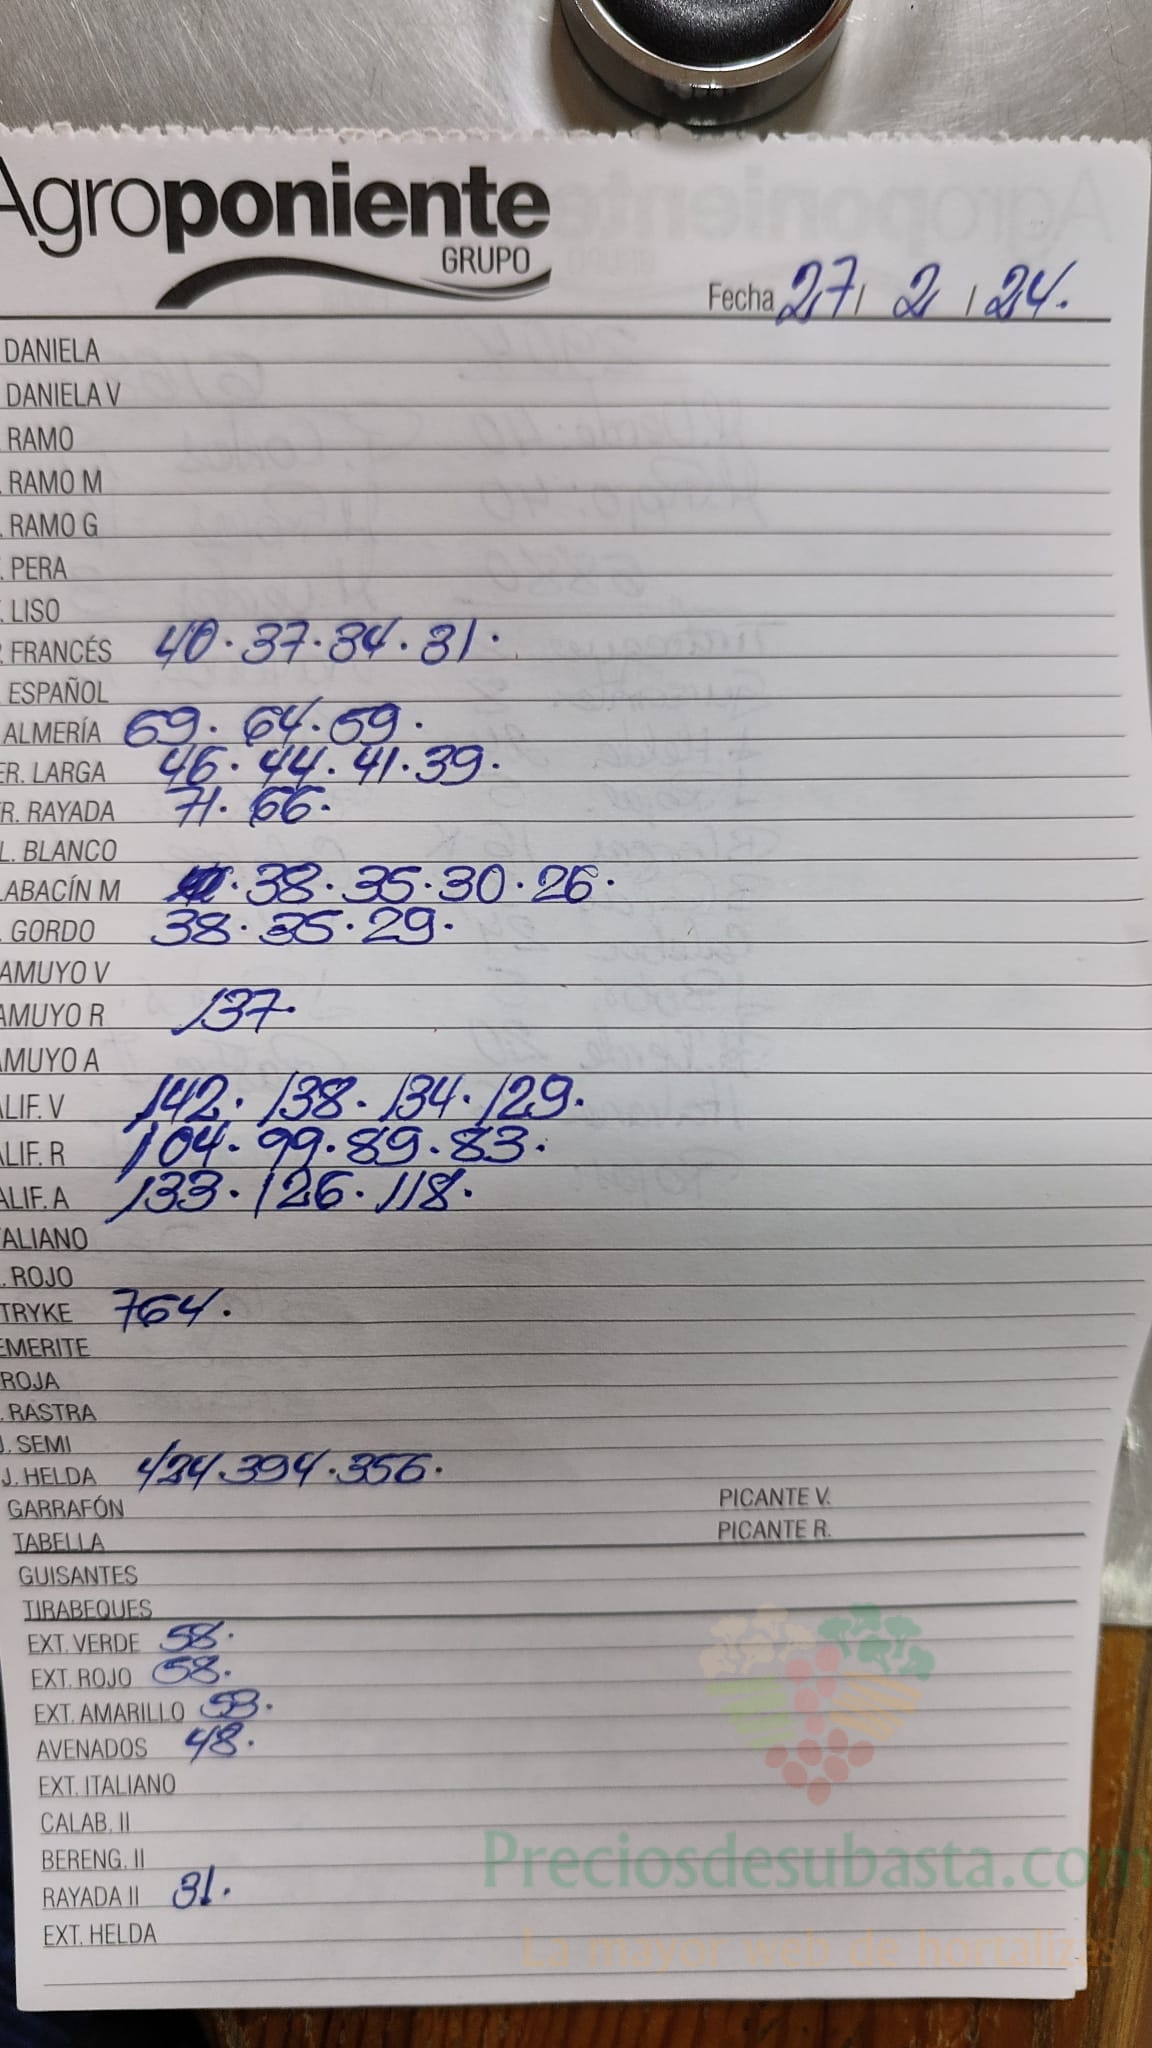 Agroponiente
GRUPO
Fecha 27 / 2 / 24.
DANIELA
DANIELA V
RAMO
. RAMO M
. RAMO G
. PERA
. LISO
. FRANCÉS 40 · 37 · 34 · 31 ·
ESPAÑOL
ALMERÍA 69 · 64 · 59 ·
ER. LARGA 46 · 44 · 41 · 39 ·
R. RAYADA 71 · 66 ·
L. BLANCO
ABACÍN M · 38 · 35 · 30 · 26 ·
. GORDO 38 · 35 · 29 ·
AMUYO V
AMUYO R 137 ·
AMUYO A
ALIF. V 142 · 138 · 134 · 129 ·
ALIF. R 104 · 99 · 89 · 83 ·
ALIF. A 133 · 126 · 118 ·
TALIANO
. ROJO
TRYKE 764 ·
EMERITE
ROJA
. RASTRA
J. SEMI
J. HELDA 424 · 394 · 356 ·
GARRAFÓN PICANTE V.
TABELLA PICANTE R.
GUISANTES
TIRABEQUES
EXT. VERDE 58 ·
EXT. ROJO 58 ·
EXT. AMARILLO 53 ·
AVENADOS 48 ·
EXT. ITALIANO
CALAB. II
BERENG. II
RAYADA II 31 ·
EXT. HELDA
Preciosdesubasta.com
La mayor web de hortalizas